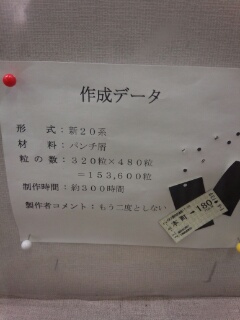 作成データ
形　式：新20系
材　料：パンチ屑
粒の数：320粒×480粒
＝153,600粒
制作時間：約300時間
製作者コメント：もう二度としない
180